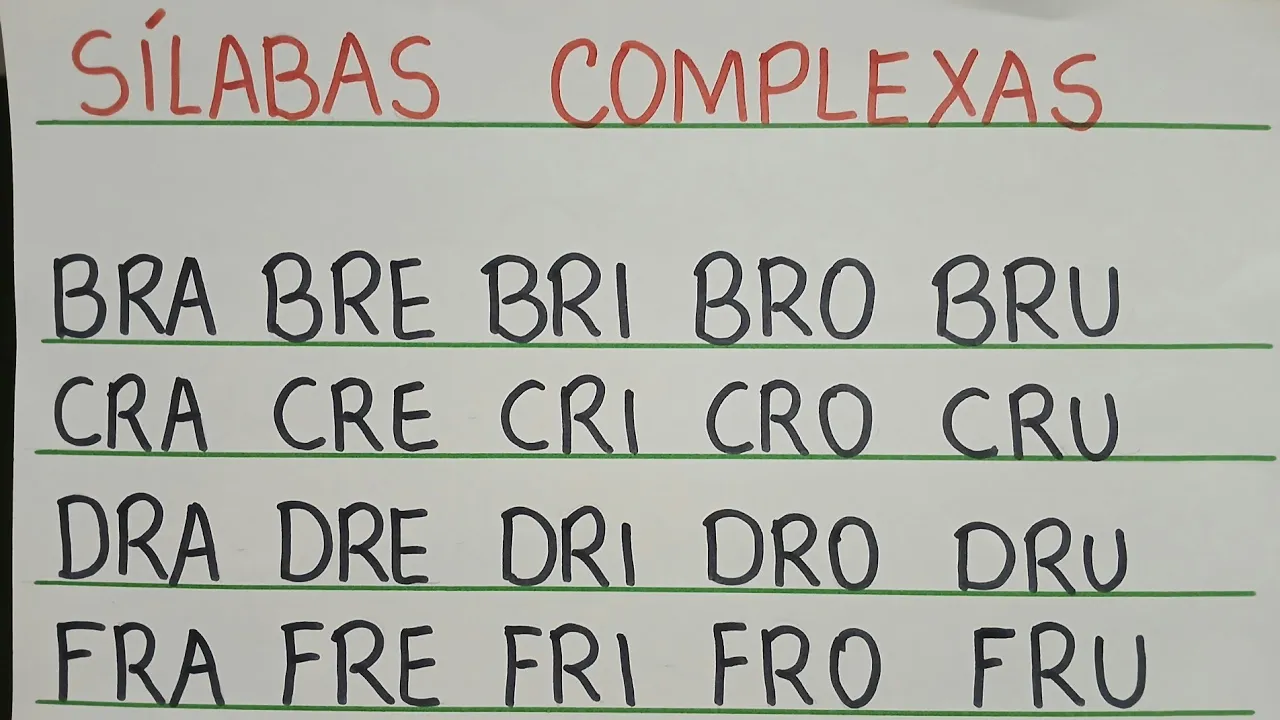 SÍLABAS COMPLEXAS
BRA BRE BRI BRO BRU
CRA CRE CRI CRO CRU
DRA DRE DRI DRO DRU
FRA FRE FRI FRO FRU